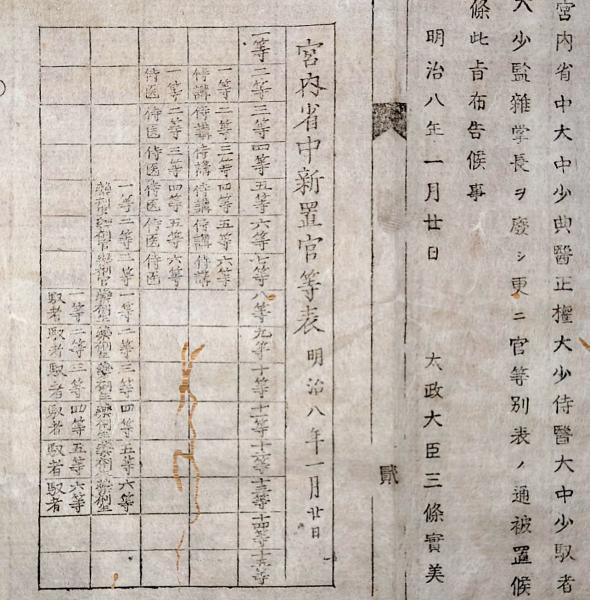 宮内省中大中少典醫正權大少侍醫大中少馭者
大少監雜掌長ヲ廢シ更ニ官等別表ノ通被置候
條此旨布告候事
明治八年一月廿日
太政大臣三條實美
貳
宮内省中新置官等表 明治八年一月廿日
一等 二等 三等 四等 五等 六等 七等 八等 九等 十等 十一等 十二等 十三等 十四等 十五等
一等侍講 二等侍講 三等侍講 四等侍講 五等侍講 六等侍講
一等侍医 二等侍医 三等侍医 四等侍医 五等侍医 六等侍医
一等 二等 三等 一等 二等 三等 四等 五等 六等
一等馭者 二等馭者 三等馭者 四等馭者 五等馭者 六等馭者